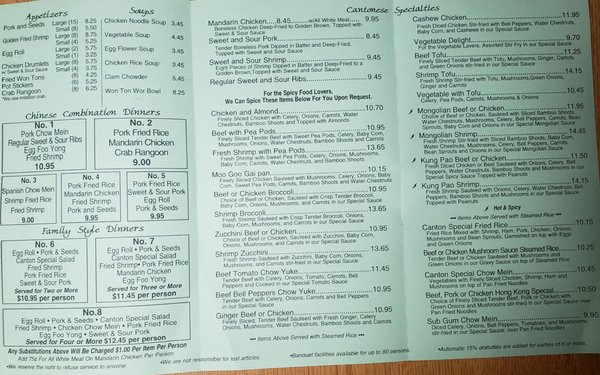 Appetizers
Pork and Seeds Large (15) 8.25
Small (8) 5.50
Golden Fried Shrimp Large (8) 6.95
Small (4)
Egg Roll Large (2)
Small (1)
Chicken Drumlets Large (8)
w/ Sweet & Sour Sauce Small (4) 3.75
Fried Won Tons (8) 4.25
Pot Stickers (6) 5.25
Crab Rangoon (6) 6.25
*We use imitation crab
Soups
Chicken Noodle Soup 3.45
Vegetable Soup 4.45
Egg Flower Soup 3.45
Chicken Rice Soup 3.45
Clam Chowder 5.45
Won Ton Wor Bowl 8.25
Chinese Combination Dinners
No. 1
Pork Chow Mein
Regular Sweet & Sour Ribs
Egg Foo Yong
Fried Shrimp
10.95
No. 2
Pork Fried Rice
Mandarin Chicken
Crab Rangoon
9.00
No. 3
Spanish Chow Mein
Shrimp Fried Rice
Fried Shrimp
9.00
No. 4
Pork Fried Rice
Mandarin Chicken
Fried Shrimp
Pork and Seeds
9.95
No. 5
Pork Fried Rice
Sweet & Sour Pork
Egg Roll
Pork and Seeds
9.95
Family Style Dinners
No. 6
Egg Roll • Pork & Seeds
Canton Special Salad
Fried Shrimp
Pork Fried Rice
Sweet & Sour Pork
Served for Two or More
$10.95 per person
No. 7
Egg Roll • Pork & Seeds
Canton Special Salad
Fried Shrimp • Pork Fried Rice
Mandarin Chicken
Egg Foo Yong
Served for Three or More
$11.45 per person
No.8
Egg Roll • Pork & Seeds • Canton Special Salad
Fried Shrimp • Chicken Chow Mein • Pork Fried Rice
Egg Foo Yong • Sweet & Sour Pork
Served for Four or More $12.45 per person
Any Substitutions Above Will Be Charged $1.00 Per Item Per Person
Add 75¢ For All White Meat On Mandarin Chicken Per Person
•We reserve the right to refuse service to anyone.
•We are not responsible for lost articles.
Cantonese Specialties
Mandarin Chicken 8.45 w/All White Meat 9.95
Boneless Chicken Deep-Fried to Golden Brown, Topped with
Sweet & Sour Sauce
Sweet and Sour Pork 8.45
Tender Boneless Pork Dipped in Batter and Deep-Fried,
Topped with Sweet and Sour Sauce
Sweet and Sour Shrimp 9.45
Eight Pieces of Shrimp Dipped in Batter and Deep-Fried to a
Golden Brown, Topped with Sweet and Sour Sauce
Regular Sweet and Sour Ribs 9.45
For the Spicy Food Lovers,
We Can Spice These Items Below For You Upon Request.
Chicken and Almond 10.70
Finely Sliced Chicken with Celery, Onions, Carrots, Water
Chestnuts, Bamboo Shoots and Topped with Almonds
Beef with Pea Pods 10.95
Finely Sliced Tender Beef with Sweet Pea Pods, Celery, Baby Corn,
Onions, Mushrooms, Carrots, Water Chestnuts, Bamboo Shoots
Fresh Shrimp with Pea Pods 13.65
Fresh Shrimp with Sweet Pea Pods, Celery, Onions, Mushrooms,
Baby Corn, Carrots, Water Chestnuts, Bamboo Shoots
Moo Goo Gai pan 10.15
Finely Sliced Chicken Sautéed with Mushrooms, Celery, Onions, Baby
Corn, Sweet Pea Pods, Carrots, Bamboo Shoots and Water Chestnuts
Beef or Chicken Broccoli 10.95
Choice of Beef or Chicken, Sautéed with Crisp Tender Broccoli,
Baby Corn, Onions, Mushrooms and Carrots in our Special Sauce
Shrimp Broccoli 13.65
Fresh Shrimp Sautéed with Crisp Tender Broccoli, Onions,
Baby Corn, Mushrooms, and Carrots in our Special Sauce
Zucchini Beef or Chicken 10.95
Choice of Beef or Chicken, Sautéed with Zucchini, Baby Corn,
Onions, Mushrooms, and Carrots in our Special Sauce
Shrimp Zucchini 13.65
Fresh Shrimp Sautéed with Zucchini, Baby Corn, Onions,
Mushrooms, and Carrots stir-fried in our Special Sauce
Beef Tomato Chow Yuke 11.45
Tender Beef with Celery, Onions, Tomato, Carrots, Bell
Peppers and Cooked in our Special Tomato Sauce
Beef Bell Peppers Chow Yuke 10.95
Tender Beef with Celery, Onions, Carrots and Bell Peppers
in our Special Sauce
Ginger Beef or Chicken 10.95
Finely Sliced, Tender Beef Sautéed with Fresh Ginger, Celery, Green and
Onions, Mushrooms, Water Chestnuts, Bamboo Shoots and Carrots
••• Items Above Served with Steamed Rice •••
•Banquet facilities available for up to 80 persons.
Cashew Chicken 11.95
Fresh Diced Chicken Stir-Fried with Bell Peppers, Water Chestnuts,
Baby Corn, and Cashews in our Special Sauce
Vegetable Delight 9.70
For the Vegetable Lovers, Assorted Stir Fry in our Special Sauce
Beef Tofu 11.25
Finely Sliced Tender Beef with Tofu, Mushrooms, Ginger, Carrots
and Green Onions stir-fried in our Special Sauce
Shrimp Tofu 14.15
Fresh Shrimp Stir-fried with Tofu, Mushrooms, Green Onions,
Ginger and Carrots
Vegetable with Tofu 10.45
Celery, Pea Pods, Carrots, Mushrooms & Onions
Mongolian Beef or Chicken 11.95
Choice of Beef or Chicken, Sautéed with Sliced Bamboo Shoots,
Water Chestnuts, Mushrooms, Celery, Bell Peppers, Carrots, Bean
Sprouts, Baby Corn and Onions in our Special Mongolian Sauce
Mongolian Shrimp 14.45
Fresh Shrimp Stir-Fried with Sliced Bamboo Shoots, Baby Corn,
Water Chestnuts, Mushrooms, Celery, Bell Peppers, Carrots,
Bean Sprouts and Onions in our Special Mongolian Sauce
Kung Pao Beef or Chicken 11.50
Fresh Diced Chicken or Beef Sautéed with Onions, Celery, Bell
Peppers, Water Chestnuts, Bamboo Shoots and Mushrooms in our
Special Spicy Sauce Topped with Peanuts
Kung Pao Shrimp 14.15
Fresh Shrimp Sautéed with Onions, Celery, Water Chestnuts, Bell
Peppers, Bamboo Shoots and Mushrooms in our Special Spicy Sauce
Topped with Peanuts
Hot & Spicy
••• Items Above Served with Steamed Rice •••
Canton Special Fried Rice 10.15
Fried Rice Mixed with Shrimp, Ham, Pork, Chicken, Onions,
Mushrooms and Bean Sprouts, Garnished on top with Eggs
and Green Onions
Beef or Chicken Mushroom Sauce Steamed Rice 10.25
Tender Beef or Chicken Sautéed with Mushrooms and
Green Onions in our Gravy Sauce on top of Steamed Rice
Canton Special Chow Mein 10.15
Vegetables with Finely Sliced Chicken, Shrimp, Ham and
Mushrooms on top of Pan Fried Noodles
Beef, Pork or Chicken Hong Kong Special 10.50
Choice of Finely Sliced Tender Beef, Pork or Chicken with
Green Onions and Mushrooms stir-fried in our Special Sauce over
Pan Fried Noodles
Sub Gum Chow Mein 9.95
Diced Celery, Onions, Bell Peppers, Tomatoes, and Mushrooms
stir-fried in our Special Sauce, over Pan Fried Noodles
•Automatic 15% gratuities are added for parties of 8 or more.